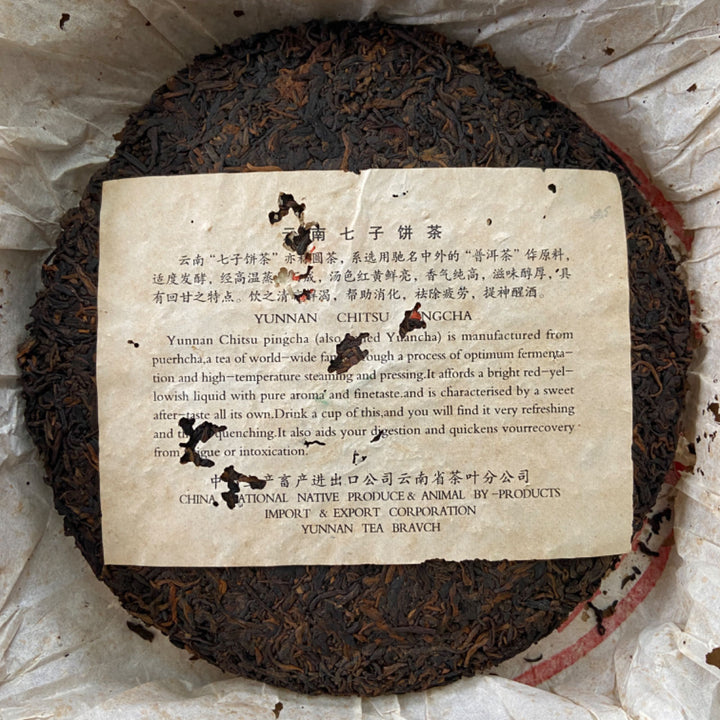 云南七子饼茶
云南“七子饼茶”亦称圆茶，系选用驰名中外的“普洱茶”作原料，
适度发酵，经高温蒸 成，汤色红黄鲜亮，香气纯高，滋味醇厚，具
有回甘之特点。饮之清 解渴，帮助消化，祛除疲劳，提神醒酒。
YUNNAN CHITSU PINGCHA
Yunnan Chitsu pingcha (also called Yuancha) is manufactured from
puerhcha,a tea of world-wide fame through a process of optimum fermenta-
tion and high-temperature steaming and pressing.It affords a bright red-yel-
lowish liquid with pure aroma and finetaste.and is characterised by a sweet
after-taste all its own.Drink a cup of this,and you will find it very refreshing
and thirst quenching.It also aids your digestion and quickens yourrecovery
from fatigue or intoxication.
中 土产畜产进出口公司云南省茶叶分公司
CHINA NATIONAL NATIVE PRODUCE & ANIMAL BY-PRODUCTS
IMPORT & EXPORT CORPORATION
YUNNAN TEA BRAVCH